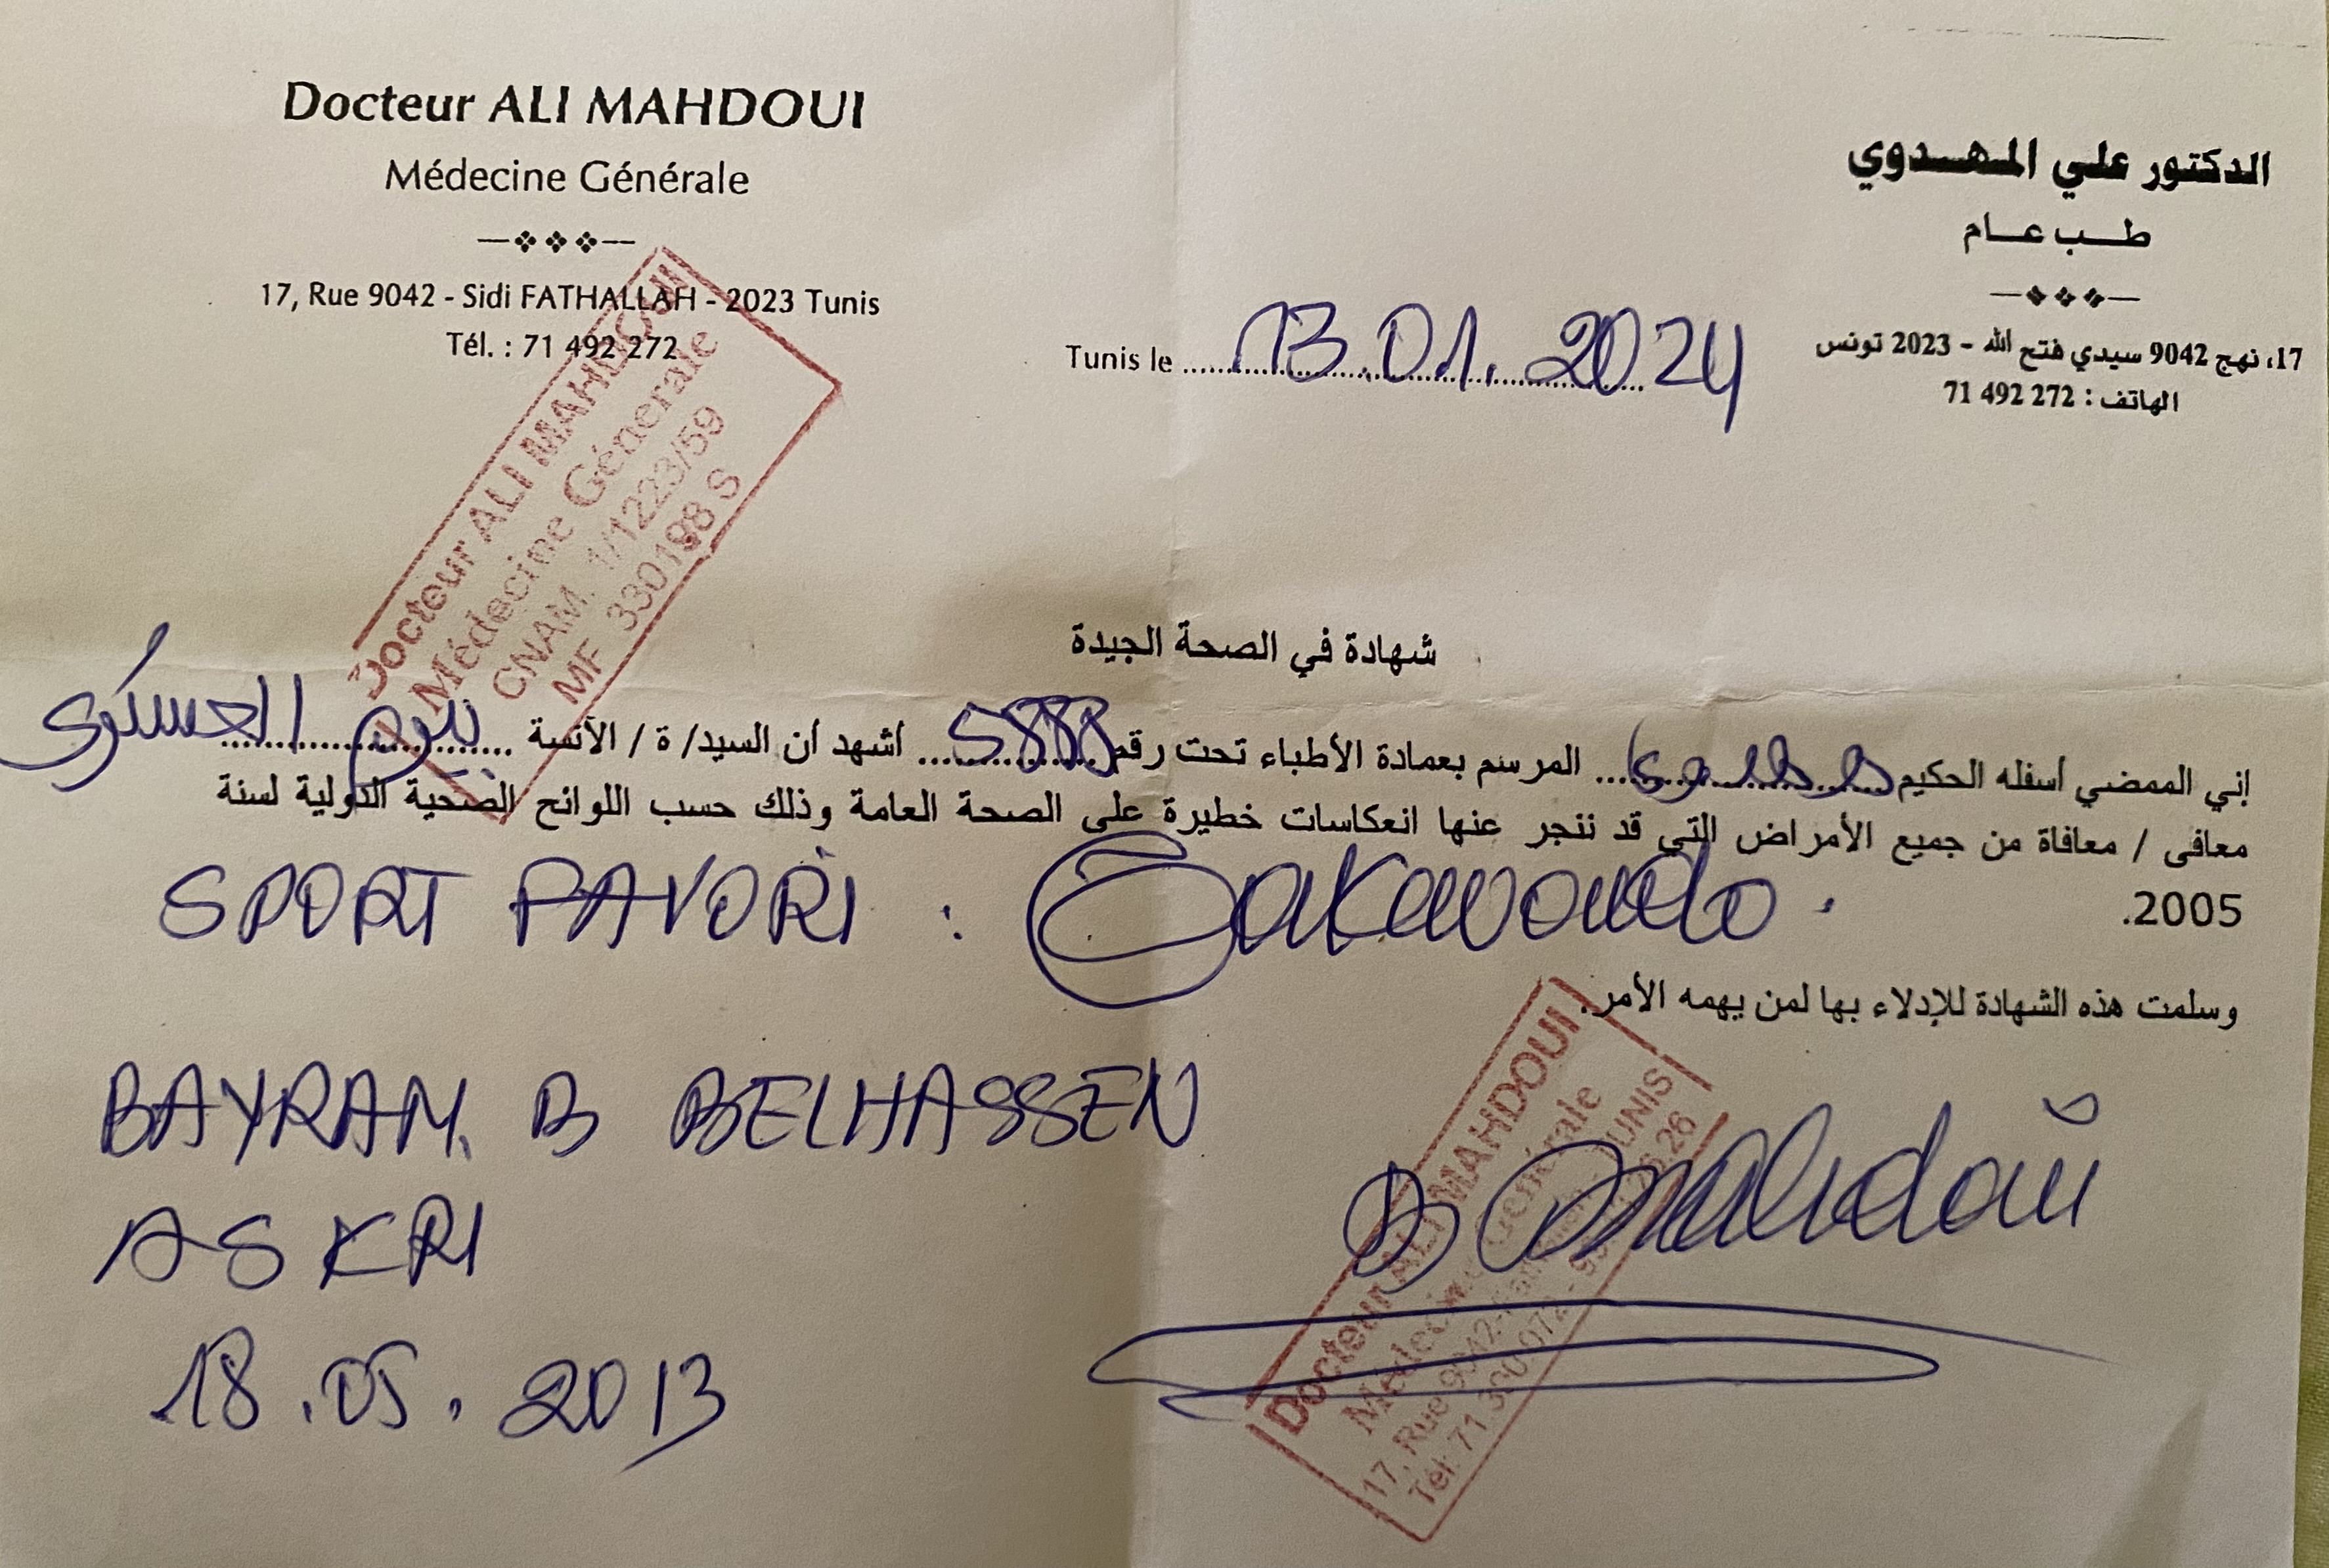 Docteur ALI MAHDOUI
Médecine Générale
17, Rue 9042 - Sidi FATHALLAH - 2023 Tunis
Tél. : 71 492 272
الدكتور علي المهدوي
طب عام
17، نهج 9042 سيدي فتح الله - 2023 تونس
الهاتف : 272 492 71
Tunis le 13.01.2024
Docteur ALI MAHDOUI
Médecine Générale
CNAM. 1/1223/59
MF 330198 S
شهادة في الصحة الجيدة
إني الممضي أسفله الحكيم المرسم بعمادة الأطباء تحت رقم 5888 أشهد أن السيد/ ة / الآنسة بيرم العسكري
معافى / معافاة من جميع الأمراض التي قد تنجر عنها انعكاسات خطيرة على الصحة العامة وذلك حسب اللوائح الصحية الدولية لسنة
2005.
SPORT FAVORI : Taekwondo.
وسلمت هذه الشهادة للإدلاء بها لمن يهمه الأمر.
BAYRAM. B BELHASSEN
ASKRI
18.05.2013
Dr Mahdoui
Docteur ALI MAHDOUI
Médecine Générale
17, Rue 9042 TUNIS
Tél: 71